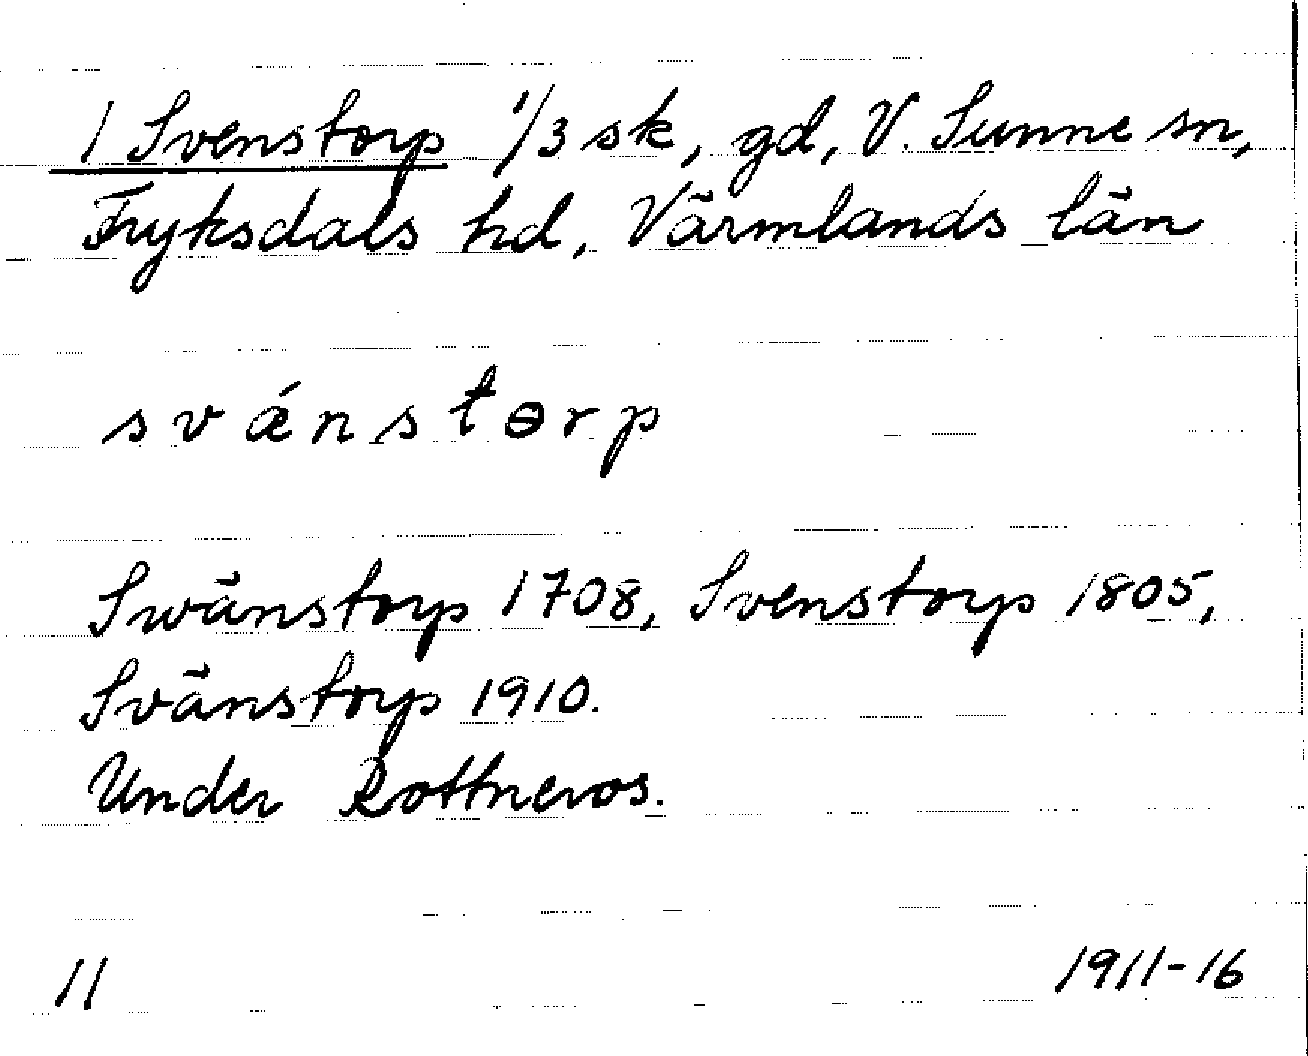 1 Svenstorp 1/3 sk, gd, V. Sunne sn,
Fryksdals hd, Värmlands län
svǽnstɵrp
Swänstorp 1708, Svenstorp 1805,
Svänstorp 1910.
Under Rottneros.
11
1911-16